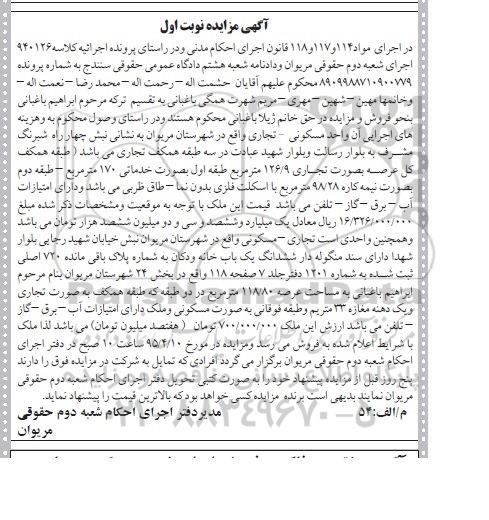 آگهی مزایده نوبت اول
در اجرای مواد۱۱۴و۱۱۷و۱۱۸ قانون اجرای احکام مدنی ودر راستای پرونده اجرائیه کلاسه۹۴۰۱۲۶
اجرای شعبه دوم حقوقی مریوان ودادنامه شعبه هشتم دادگاه عمومی حقوقی سنندج به شماره پرونده
۸۹۰۹۹۸۸۷۱۰۹۰۰۷۷۹ محکوم علیهم آقایان حشمت اله – رحمت اله – محمد رضا – نعمت اله –
وخانمها مهین – شهین – مهری – مریم شهرت همگی باغبانی به تقسیم ترکه مرحوم ابراهیم باغبانی
بنحو فروش و مزایده در حق خانم ژیلا باغبانی محکوم هستند ودر راستای وصول محکوم به وهزینه
های اجرایی آن واحد مسکونی - تجاری واقع در شهرستان مریوان به نشانی نبش چهار راه شبرنگ
مشرف به بلوار رسالت وبلوار شهید عبادت در سه طبقه همکف تجاری می باشد ( طبقه همکف
کل عرصه بصورت تجاری ۱۲۶/۹ مترمربع طبقه اول بصورت خدماتی ۱۷۰ مترمربع – طبقه دوم
بصورت نیمه کاره ۹۸/۲۸ مترمربع با اسکلت فلزی بدون نما – طاق ظربی می باشد ودارای امتیازات
آب – برق – گاز – تلفن می باشد قیمت این ملک با توجه به موقعیت ومشخصات ذکر شده مبلغ
۱۶/۳۲۶/۰۰۰/۰۰۰ ریال معادل یک میلیارد وششصد و سی و دو میلیون ششصد هزار تومان می باشد
وهمچنین واحدی است تجاری – مسکونی واقع در شهرستان مریوان نبش خیابان شهید رجایی بلوار
شهدا دارای سند منگوله دار ششدانگ یک باب خانه ودکان به شماره پلاک باقی مانده ۷۲۰ اصلی
ثبت شده به شماره ۱۲۰۱ دفترجلد ۷ صفحه ۱۱۸ واقع در بخش ۲۴ شهرستان مریوان بنام مرحوم
ابراهیم باغبانی به مساحت عرصه ۱۱۸۸۰ مترمربع در دو طبقه که طبقه همکف به صورت تجاری
ویک دهنه مغازه ۳۳ متریم وطبقه فوقانی به صورت مسکونی وملک دارای امتیازات آب – برق – گاز
– تلفن می باشد ارزش این ملک ۷/۰۰۰/۰۰۰/۰۰۰ تومان ( هفتصد میلیون تومان) می باشد لذا ملک
با شرایط اعلام شده به فروش می رسد ومزایده در مورخ ۹۵/۴/۱۰ ساعت ۱۰ صبح در دفتر اجرای
احکام شعبه دوم حقوقی مریوان برگزار می گردد افرادی که تمایل به شرکت در مزایده فوق را دارند
پنج روز قبل از مزایده پیشنهاد خود را به صورت کتبی تحویل دفتر اجرای احکام شعبه دوم حقوقی
مریوان نمایند بدیهی است برنده مزایده کسی خواهد بود که بالاترین قیمت را پیشنهاد نماید.
م/الف:۵۴ مدیردفتر اجرای احکام شعبه دوم حقوقی
مریوان